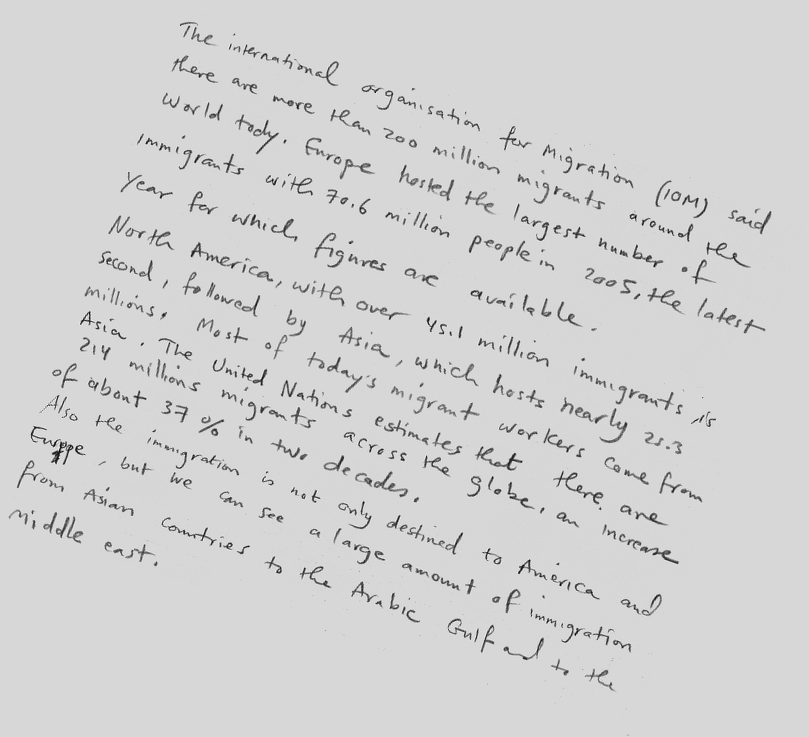 The international organisation for Migration (IOM) said
there are more than 200 million migrants around the
world tody. Europe hosted the largest number of
immigrants with 70.6 million people in 2005, the latest
year for which figures are available.
North America, with over 45.1 million immigrants, is
second, followed by Asia, which hosts nearly 25.3
millions. Most of today's migrant workers come from
Asia. The United Nations estimates that there are
214 millions migrants across the globe, an increase
of about 37 % in two decades.
Also the immigration is not only destined to America and
Europe, but we can see a large amount of immigration
from Asian countries to the Arabic Gulf and to the
middle east.